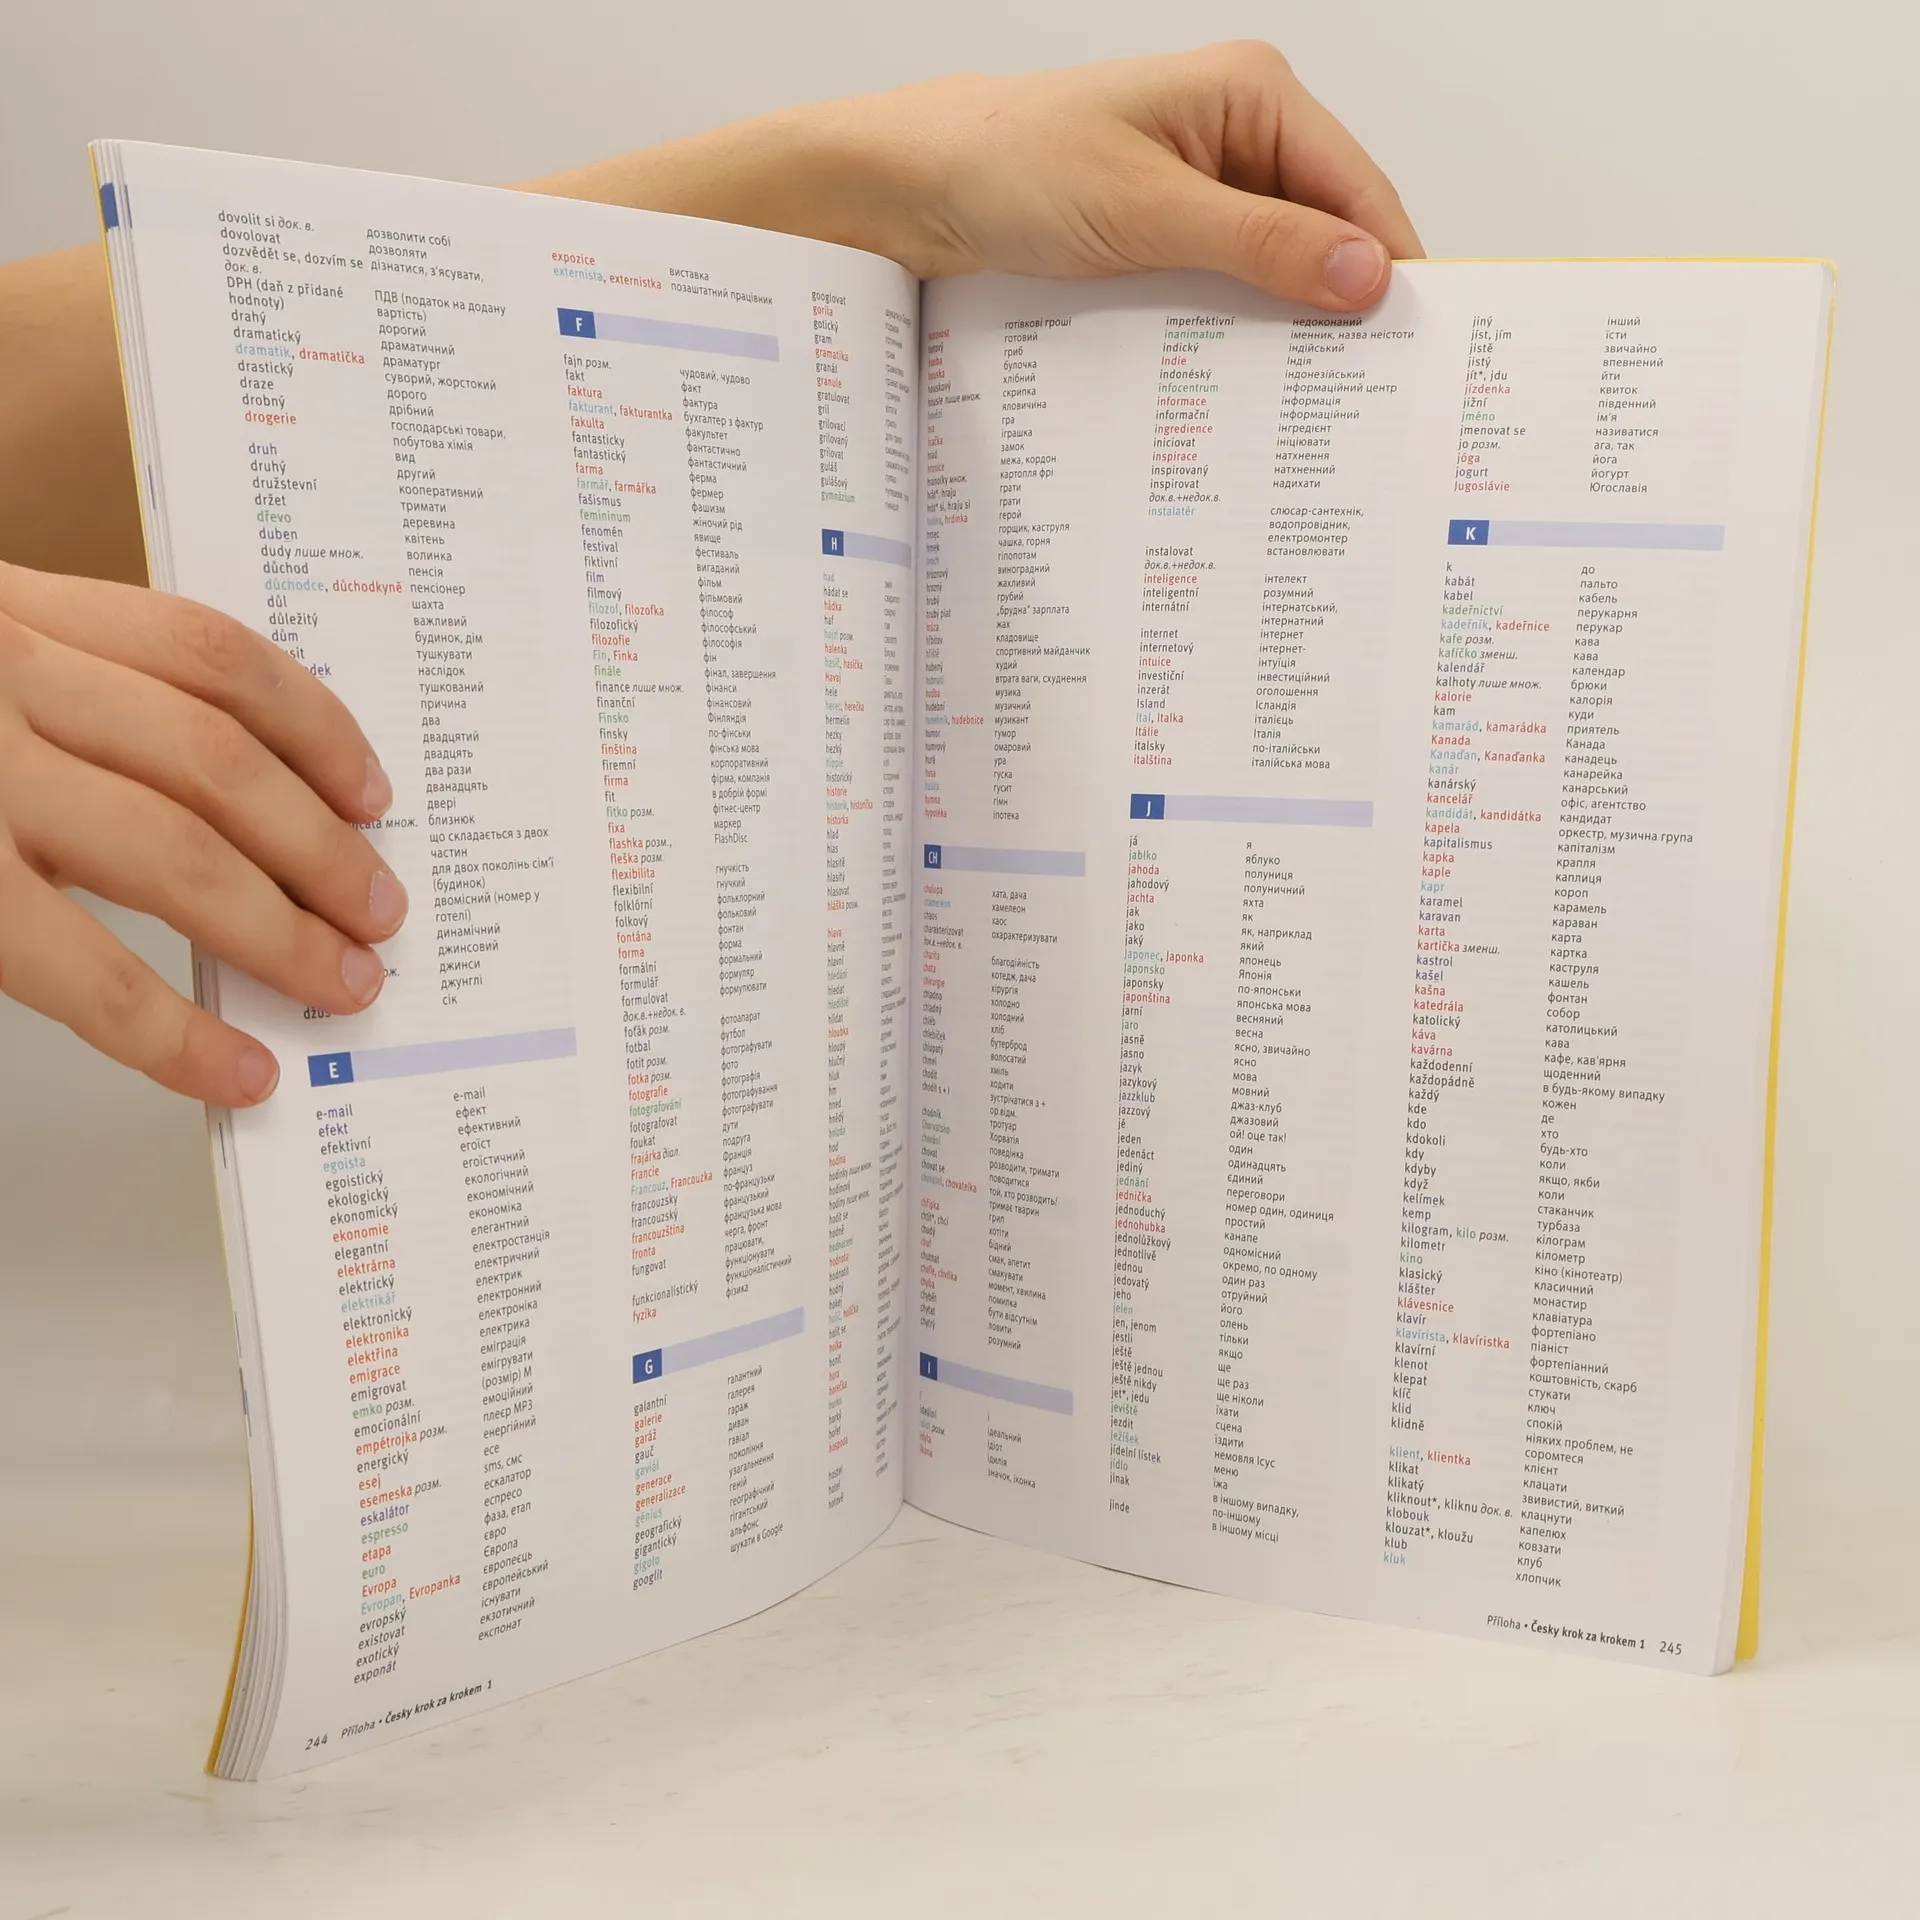 dovolit si док. в. дозволити собі
dovolovat дозволяти
dozvědět se, dozvím se дізнатися, з'ясувати,
док. в.
DPH (daň z přidané ПДВ (податок на додану
hodnoty) вартість)
drahý дорогий
dramatický драматичний
dramatik, dramatička драматург
drastický суворий, жорстокий
draze дорого
drobný дрібний
drogerie господарські товари,
побутова хімія
druh вид
druhý другий
družstevní кооперативний
držet тримати
dřevo деревина
duben квітень
dudy лише множ. волинка
důchod пенсія
důchodce, důchodkyně пенсіонер
důl шахта
důležitý важливий
dům будинок, дім
тушкувати
наслідок
тушкований
причина
два
двадцятий
двадцять
два рази
дванадцять
двері
множ. близнюк
що складається з двох
частин
для двох поколінь сім'ї
(будинок)
двомісний (номер у
готелі)
динамічний
джинсовий
джинси
джунглі
džus сік
E
e-mail e-mail
efekt ефект
efektivní ефективний
egoista егоїст
egoistický егоїстичний
ekologický екологічний
ekonomický економічний
ekonomie економіка
elegantní елегантний
elektrárna електростанція
elektrický електричний
elektrikář електрик
elektronický електронний
elektronika електроніка
elektřina електрика
emigrace еміграція
emigrovat емігрувати
emko розм. (розмір) M
emocionální емоційний
empétrojka розм. плеєр MP3
energický енергійний
esej есе
esemeska розм. sms, смс
eskalátor ескалатор
espresso еспресо
etapa фаза, етап
euro євро
Evropa Європа
Evropan, Evropanka європеєць
evropský європейський
existovat існувати
exotický екзотичний
exponát експонат
244 Příloha • Česky krok za krokem 1
expozice виставка
externista, externistka позаштатний працівник
F
fajn розм. чудовий, чудово
fakt факт
faktura фактура
fakturant, fakturantka бухгалтер з фактур
fakulta факультет
fantasticky фантастично
fantastický фантастичний
farma ферма
farmář, farmářka фермер
fašismus фашизм
femininum жіночий рід
fenomén явище
festival фестиваль
fiktivní вигаданий
film фільм
filmový фільмовий
filozof, filozofka філософ
filozofický філософський
filozofie філософія
Fin, Finka фін
finále фінал, завершення
finance лише множ. фінанси
finanční фінансовий
Finsko Фінляндія
finsky по-фінськи
finština фінська мова
firemní корпоративний
firma фірма, компанія
fit в добрій формі
fitko розм. фітнес-центр
fixa маркер
flashka розм., FlashDisc
fleška розм.
flexibilita гнучкість
flexibilní гнучкий
folklórní фольклорний
folkový фольковий
fontána фонтан
forma форма
formální формальний
formulář формуляр
formulovat формулювати
док.в.+недок. в.
foťák розм. фотоапарат
fotbal футбол
fotit розм. фотографувати
fotka розм. фото
fotografie фотографія
fotografování фотографування
fotografovat фотографувати
foukat дути
frajárka діал. подруга
Francie Франція
Francouz, Francouzka француз
francouzsky по-французьки
francouzský французький
francouzština французька мова
fronta черга, фронт
fungovat працювати,
функціонувати
funkcionalistický функціоналістичний
fyzika фізика
G
galantní галантний
galerie галерея
garáž гараж
gauč диван
gaviál гавіал
generace покоління
generalizace узагальнення
génius геній
geografický географічний
gigantický гігантський
gigolo альфонс
googlit шукати в Google
googlovat
gorila
gotický
gram
gramatika
granát
granule
gratulovat
gril
grilovací
grilovaný
grilovat
guláš
gulášový
gymnázium
H
had
hádat se
hádka
haf
hajzl розм.
halenka
hasič, hasička
Havaj
hele
herec, herečka
hermelín
hezky
hezký
hippie
historický
historie
historik, historička
historka
hlad
hlas
hlasitě
hlasitý
hlasovat
hláška розм.
hlava
hlavně
hlavní
hledání
hledat
hlediště
hlídat
hloubka
hloupý
hlučný
hluk
hm
hned
hnědý
hnízdo
hod
hodina
hodinky лише множ.
hodinový
hodiny лише множ.
hodit se
hodně
hodnocení
hodnota
hodnotit
hodný
hokej
holič, holička
holit se
holka
honit
hora
horečka
horko
horký
hořet
hospoda
hostel
hotel
hotově
hotovost готівкові гроші
hotový готовий
houba гриб
houska булочка
houskový хлібний
housle лише множ. скрипка
hovězí яловичина
hra гра
hračka іграшка
hrad замок
hranice межа, кордон
hranolky множ. картопля фрі
hrát*, hraju грати
hrát* si, hraju si грати
hrdina, hrdinka герой
hrnec горщик, каструля
hrnek чашка, горня
hroch гіпопотам
hroznový виноградний
hrozný жахливий
hrubý грубий
hrubý plat „брудна" зарплата
hrůza жах
hřbitov кладовище
hřiště спортивний майданчик
hubený худий
hubnutí втрата ваги, схуднення
hudba музика
hudební музичний
hudebník, hudebnice музикант
humor гумор
humrový омаровий
hurá ура
husa гуска
husita гусит
hymna гімн
hypotéka іпотека
CH
chalupa хата, дача
chameleon хамелеон
chaos хаос
charakterizovat охарактеризувати
док.в.+недок. в.
charita благодійність
chata котедж, дача
chirurgie хірургія
chladno холодно
chladný холодний
chléb хліб
chlebíček бутерброд
chlupatý волосатий
chmel хміль
chodit ходити
chodit s + I зустрічатися з +
ор.відм.
chodník тротуар
Chorvatsko Хорватія
chování поведінка
chovat розводити, тримати
chovat se поводитися
chovatel, chovatelka той, хто розводить/
тримає тварин
chřipka грип
chtít*, chci хотіти
chudý бідний
chuť смак, апетит
chutnat смакувати
chvíle, chvilka момент, хвилина
chyba помилка
chybět бути відсутнім
chytat ловити
chytrý розумний
I
i і
ideální ідеальний
idiot розм. ідіот
idyla ідилія
ikona значок, іконка
imperfektivní недоконаний
inanimatum іменник, назва неістоти
indický індійський
Indie Індія
indonéský індонезійський
infocentrum інформаційний центр
informace інформація
informační інформаційний
ingredience інгредієнт
iniciovat ініціювати
inspirace натхнення
inspirovaný натхненний
inspirovat надихати
док.в.+недок.в.
instalatér слюсар-сантехнік,
водопровідник,
електромонтер
instalovat встановлювати
док.в.+недок.в.
inteligence інтелект
inteligentní розумний
internátní інтернатський,
інтернатний
internet інтернет
internetový інтернет-
intuice інтуїція
investiční інвестиційний
inzerát оголошення
Island Ісландія
Ital, Italka італієць
Itálie Італія
italsky по-італійськи
italština італійська мова
J
já я
jablko яблуко
jahoda полуниця
jahodový полуничний
jachta яхта
jak як
jako як, наприклад
jaký який
Japonec, Japonka японець
Japonsko Японія
japonsky по-японськи
japonština японська мова
jarní весняний
jaro весна
jasně ясно, звичайно
jasno ясно
jazyk мова
jazykový мовний
jazzklub джаз-клуб
jazzový джазовий
jé ой! оце так!
jeden один
jedenáct одинадцять
jediný єдиний
jednání переговори
jednička номер один, одиниця
jednoduchý простий
jednohubka канапе
jednolůžkový одномісний
jednotlivě окремо, по одному
jednou один раз
jedovatý отруйний
jeho його
jelen олень
jen, jenom тільки
jestli якщо
ještě ще
ještě jednou ще раз
ještě nikdy ще ніколи
jet*, jedu їхати
jeviště сцена
jezdit їздити
Ježíšek немовля Ісус
jídelní lístek меню
jídlo їжа
jinak в іншому випадку,
по-іншому
jinde в іншому місці
jiný інший
jíst, jím їсти
jistě звичайно
jistý впевнений
jít*, jdu йти
jízdenka квиток
jižní південний
jméno ім'я
jmenovat se називатися
jo розм. ага, так
jóga йога
jogurt йогурт
Jugoslávie Югославія
K
k до
kabát пальто
kabel кабель
kadeřnictví перукарня
kadeřník, kadeřnice перукар
kafe розм. кава
kafíčko зменш. кава
kalendář календар
kalhoty лише множ. брюки
kalorie калорія
kam куди
kamarád, kamarádka приятель
Kanada Канада
Kanaďan, Kanaďanka канадець
kanár канарейка
kanárský канарський
kancelář офіс, агентство
kandidát, kandidátka кандидат
kapela оркестр, музична група
kapitalismus капіталізм
kapka крапля
kaple каплиця
kapr короп
karamel карамель
karavan караван
karta карта
kartička зменш. картка
kastrol каструля
kašel кашель
kašna фонтан
katedrála собор
katolický католицький
káva кава
kavárna кафе, кав'ярня
každodenní щоденний
každopádně в будь-якому випадку
každý кожен
kde де
kdo хто
kdokoli будь-хто
kdy коли
kdyby якщо, якби
když коли
kelímek стаканчик
kemp турбаза
kilogram, kilo розм. кілограм
kilometr кілометр
kino кіно (кінотеатр)
klasický класичний
klášter монастир
klávesnice клавіатура
klavír фортепіано
klavírista, klavíristka піаніст
klavírní фортепіанний
klenot коштовність, скарб
klepat стукати
klíč ключ
klid спокій
klidně ніяких проблем, не
соромтеся
klient, klientka клієнт
klikat клацати
klikatý звивистий, виткий
kliknout*, kliknu док. в. клацнути
klobouk капелюх
klouzat*, kloužu ковзати
klub клуб
kluk хлопчик
Příloha • Česky krok za krokem 1 245